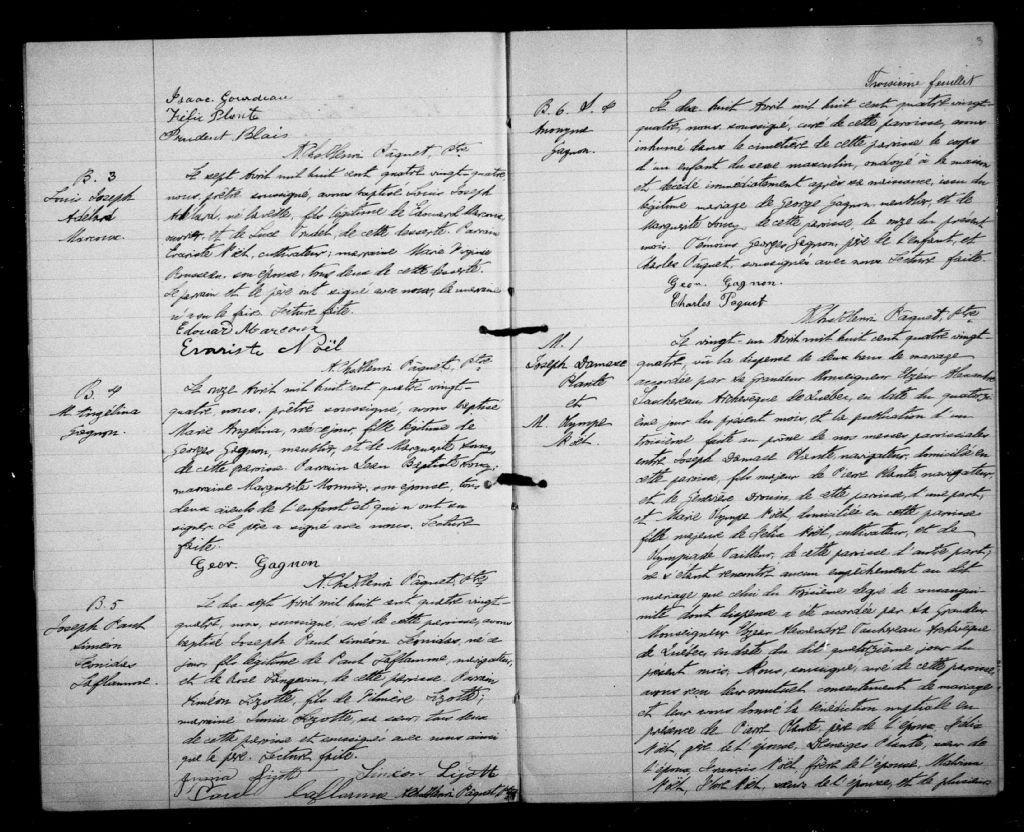 Isaac Gourdeau
Félix Plont
Prudent Blais
N. Chs Henri Pâquet, Ptre
B. 3
Louis Joseph
Adélard
Marcoux.
Le sept Avril mil huit cent quatre vingt-quatre
nous prêtre soussigné, avons baptisé Louis Joseph
Adélard, né la veille, fils légitime de Edouard Marcoux
et de Luce Trudel, de cette desserte. Parrain
Evariste Noël, cultivateur; marraine Marie Virginie
Rousseau, son épouse, tous deux de cette desserte.
Le parrain et le père ont signé avec nous, la marraine
n'a su le faire. Lecture faite.
Edouard Marcoux
Evariste Noël
N. Chs Henri Pâquet, Ptre
B. 4
M. Angélina
Gagnon.
Le onze Avril mil huit cent quatre vingt-
quatre, nous, prêtre soussigné, avons baptisé
Marie Angélina, née ce jour, fille légitime de
Georges Gagnon, meublier, et de Marguerite
de cette paroisse. Parrain Jean Baptiste
marraine Marguerite Monnier, son épouse, tous
deux aïeuls de l'enfant et qui n'ont su
signer. Le père a signé avec nous. Lecture
faite.
Geor. Gagnon
N. Chs Henri Pâquet, Ptre
B. 5
Joseph Paul
Siméon
Léonidas
Laflamme.
Le dix sept Avril mil huit cent quatre vingt-
quatre, nous, soussigné, curé de cette paroisse, avons
baptisé Joseph Paul Siméon Léonidas, né ce
jour, fils légitime de Paul Laflamme, navigateur,
et de Rose de cette paroisse. Parrain
Siméon Lizotte, fils de Lizotte,
marraine Lizotte, sa sœur, tous deux
de cette paroisse et soussignés avec nous ainsi
que le père. Lecture faite.
Lizott Siméon Lizott
Paul Laflamme N. Chs Henri Pâquet, Ptre
3
Troisième feuillet
B. 6. S. 4
Anonyme
Gagnon.
Le dix huit Avril mil huit cent quatre vingt-
quatre, nous, soussigné, curé de cette paroisse, avons
inhumé dans le cimetière de cette paroisse le corps
d'un enfant du sexe masculin, ondoyé à la maison
et décédé immédiatement après sa naissance, issu du
légitime mariage de George Gagnon, meublier, et de
Marguerite de cette paroisse, le onze du présent
mois. Témoins Georges Gagnon, père de l'enfant, et
Charles Pâquet, soussignés avec nous. Lecture faite.
Geor. Gagnon.
Charles Paquet
N. Chs Henri Pâquet, Ptre
M. 1
Joseph Damase
Plante
et
M. Olympe
Noël.
Le vingt-un Avril mil huit cent quatre vingt-
quatre, vu la dispense de deux bans de mariage
accordée par Sa Grandeur Monseigneur Elzéar Alexandre
Taschereau Archevêque de Québec, en date du quatorz-
ième jour du présent mois, et la publication d'un
troisième faite au prône de nos messes paroissiales
entre Joseph Damase Plante, navigateur, domicilié en
cette paroisse, fils majeur de Pierre Plante, navigateur,
et de Geneviève Drouin, de cette paroisse, d'une part,
et Marie Olympe Noël, domiciliée en cette paroisse
fille majeure de Noël, cultivateur, et de
Olympiade Pailleur, de cette paroisse d'autre part;
ne s'étant rencontré aucun empêchement au dit
mariage que celui du troisième degré de consangui-
nité dont dispense a été accordée par Sa Grandeur
Monseigneur Elzéar Alexandre Taschereau Archevêque
de Québec, en date du dit quatorzième jour du
présent mois, Nous, soussigné, curé de cette paroisse,
avons reçu leur mutuel consentement de mariage
et leur avons donné la bénédiction nuptiale en
présence de Pierre Plante, père de l'époux,
Noël, père de l'épouse, Plante, sœur de
l'époux, François Noël, frère de l'épouse, Malvina
Noël, Noël, sœurs de l'épouse, et de plusieurs